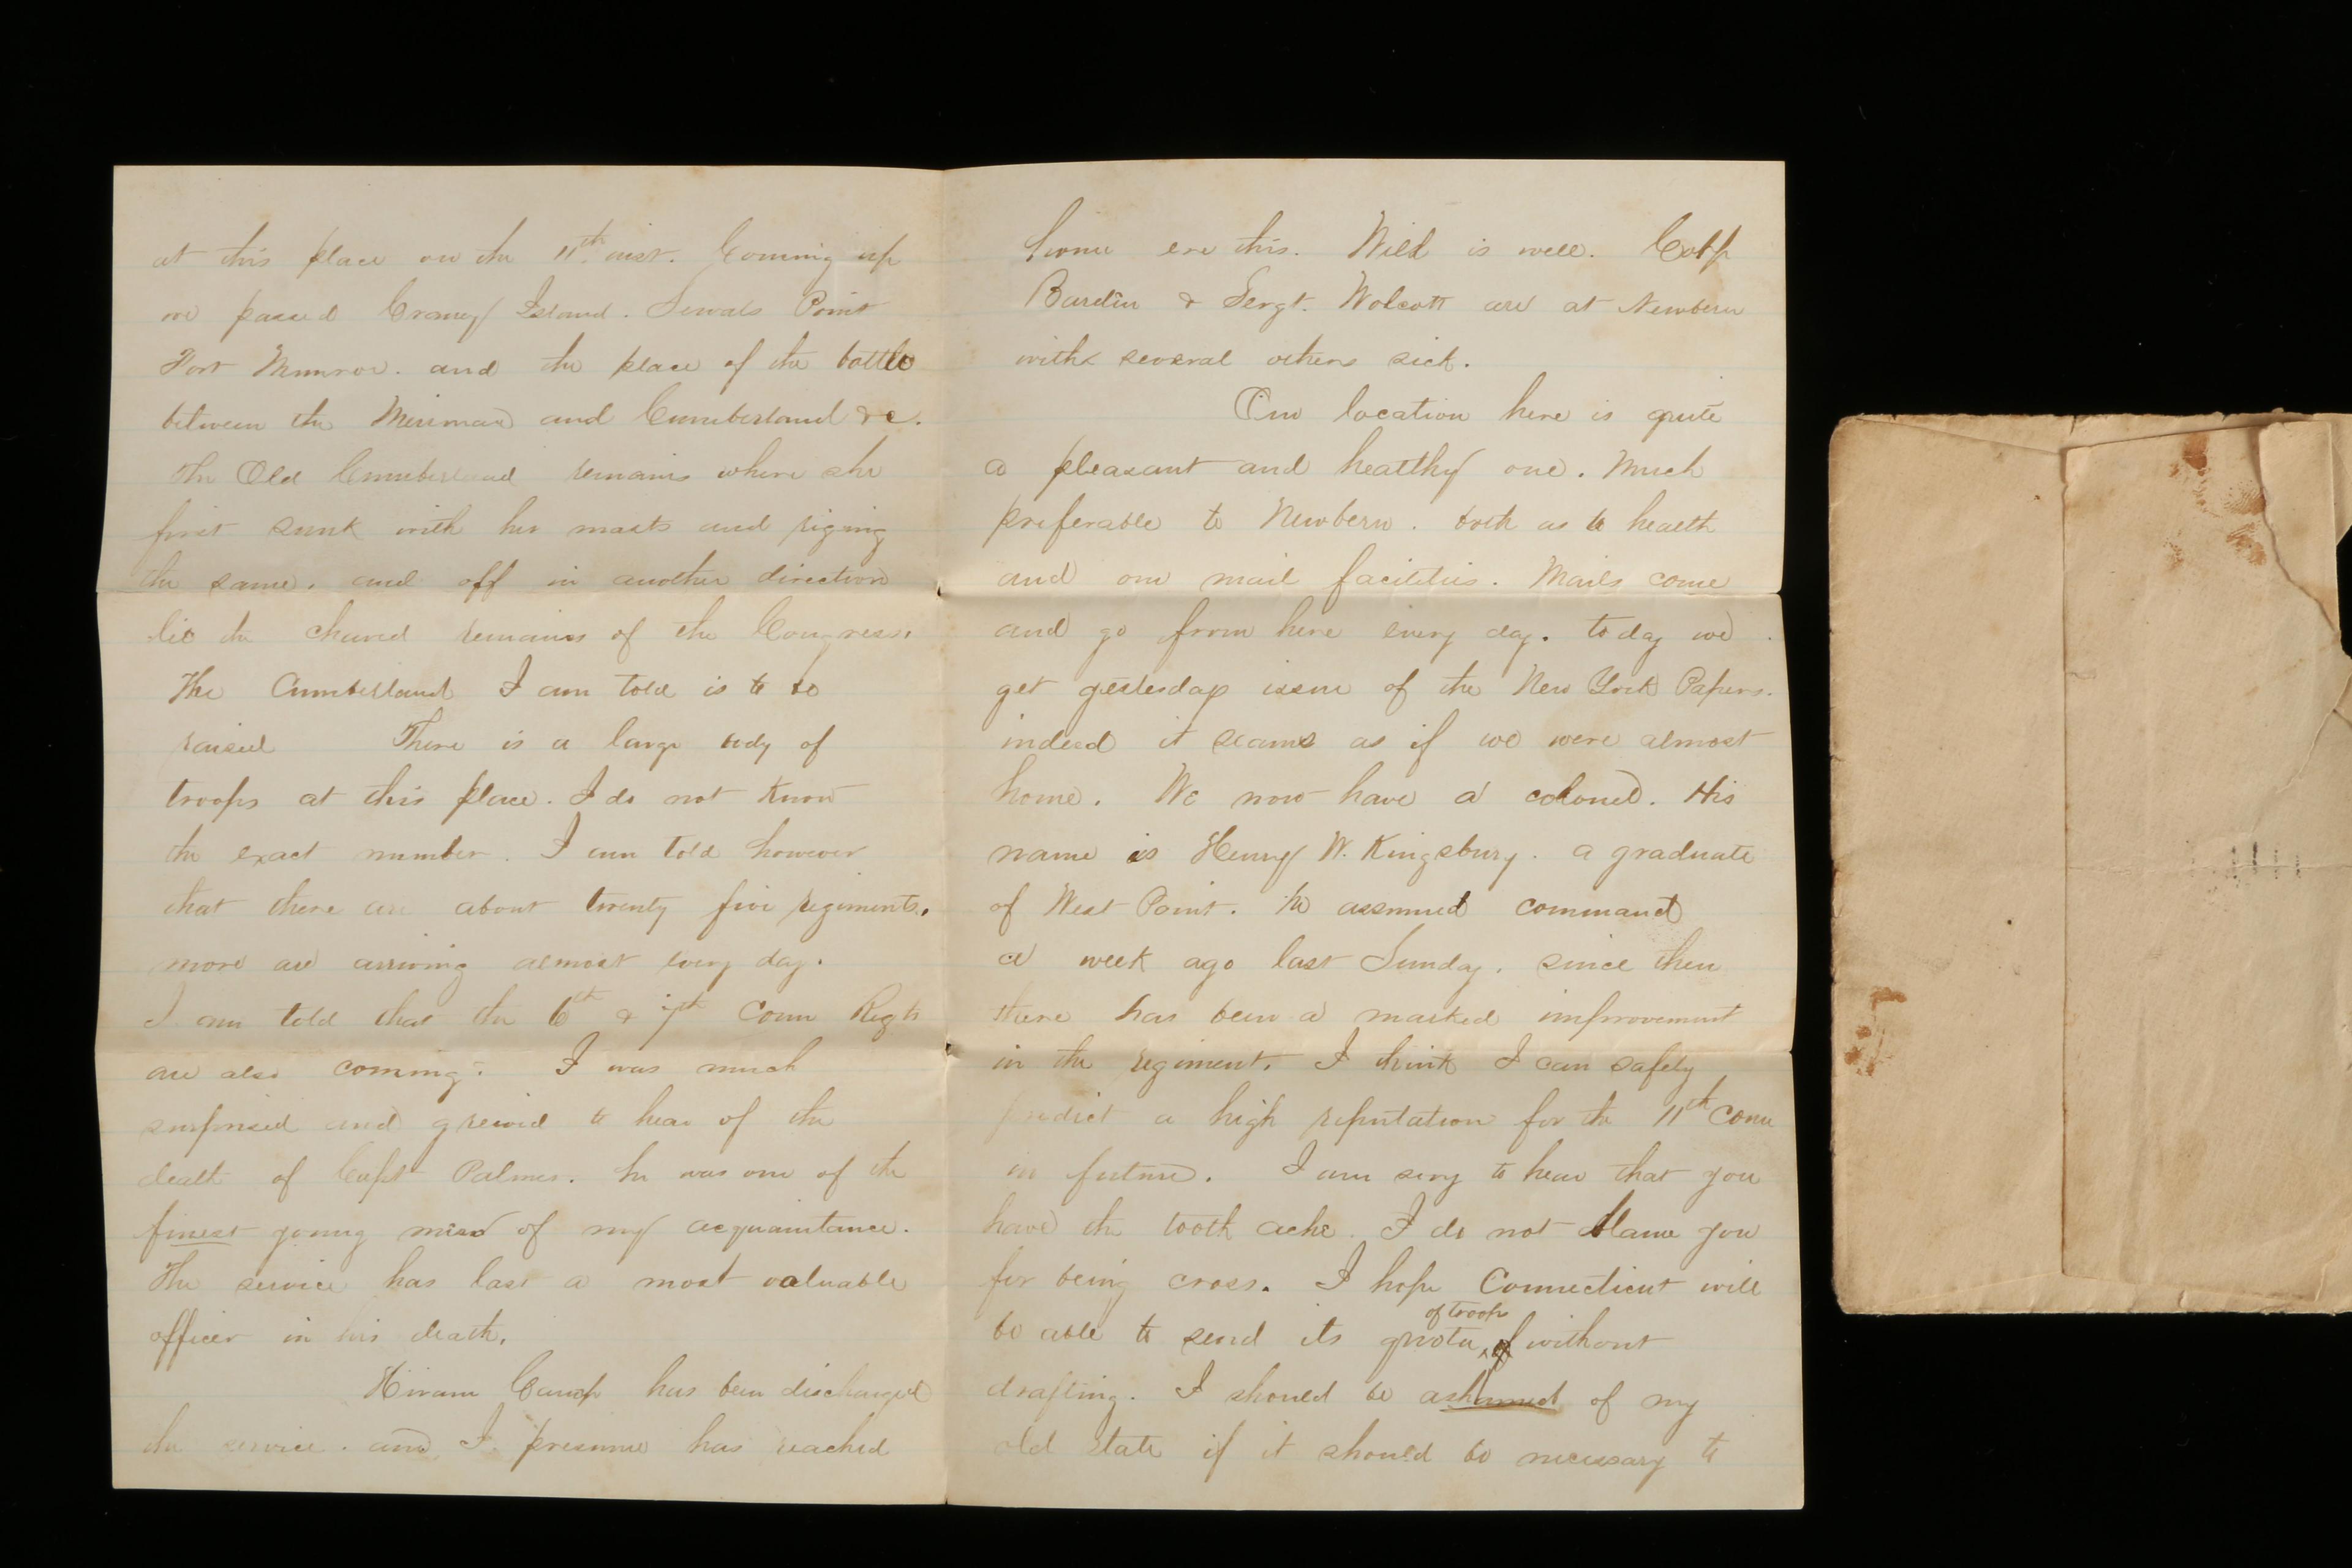 at this place on the 11th inst. Coming up
we passed Craney Island. Sewals Point
Fort Munroe. and the place of the battle
between the Merimac and Cumberland &c.
The Old Cumberland remains where she
first sunk with her masts and riging
the same. and off in another direction
lie the chared remains of the Congress.
The Cumberland I am told is to be
raised There is a large body of
troops at this place. I do not know
the exact number. I am told however
that there are about twenty five regiments.
more are arriving almost every day.
I am told that the 6th & 7th Conn Regts
are also coming. I was much
surprised and greived to hear of the
death of Capt Palmer. he was one of the
finest young men of my acquaintance.
The service has lost a most valuable
officer in his death.
Hiram Camp has been discharged
the service. and I presume has reached
home ere this. Will is well. Corp
Burdin & Sergt. Wolcott are at Newbern
with several others sick.
Our location here is quite
a pleasant and healthy one. Much
preferable to Newbern. both as to health
and our mail facilities. Mails come
and go from here every day. to day we
get yesterday issue of the New York Papers.
indeed it seams as if we were almost
home. We now have a colonel. His
name is Henry W. Kingsbury. a graduate
of West Point. he assumed command
a week ago last Sunday. since then
there has been a marked improvement
in the regiment. I think I can safely
predict a high reputation for the 11th Conn
in future. I am sory to hear that you
have the tooth ache. I do not blame you
for being cross. I hope Connecticut will
of troops
be able to send its quota without
drafting. I should be ashamed of my
old state if it should be necessary to